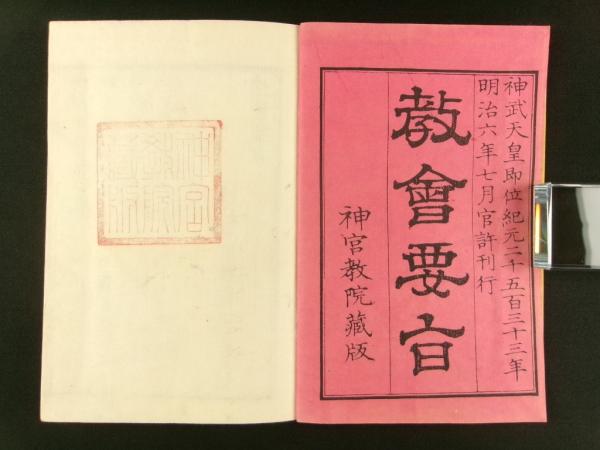 神武天皇即位紀元二千五百三十三年
明治六年七月官許刊行
教會要旨
神宮教院藏版